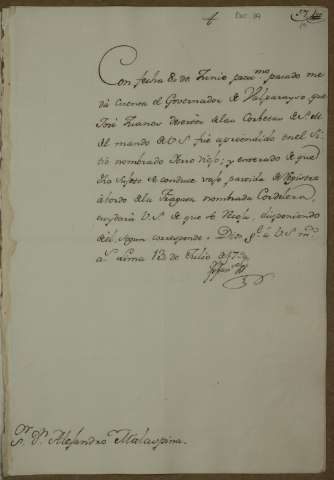 Con fecha 8 de Junio pasado me
dá cuenta el Governador de Valparayso que
José Desertor de las Corbetas de S. M.
del mando de VS fué aprendido en el Si-
tio nombrado Cerro viejo; y enterado de que
dho sujeto se conduce vajo partida de Registro
abordo de la Fragata nombrada Cordelera,
cuydará V.S. de que se disponiendo
de él segun corresponde. Dios gue. á VS ms.
as. Lima 13 de Julio de
Sr. Dn. Alejandro Malaspina.